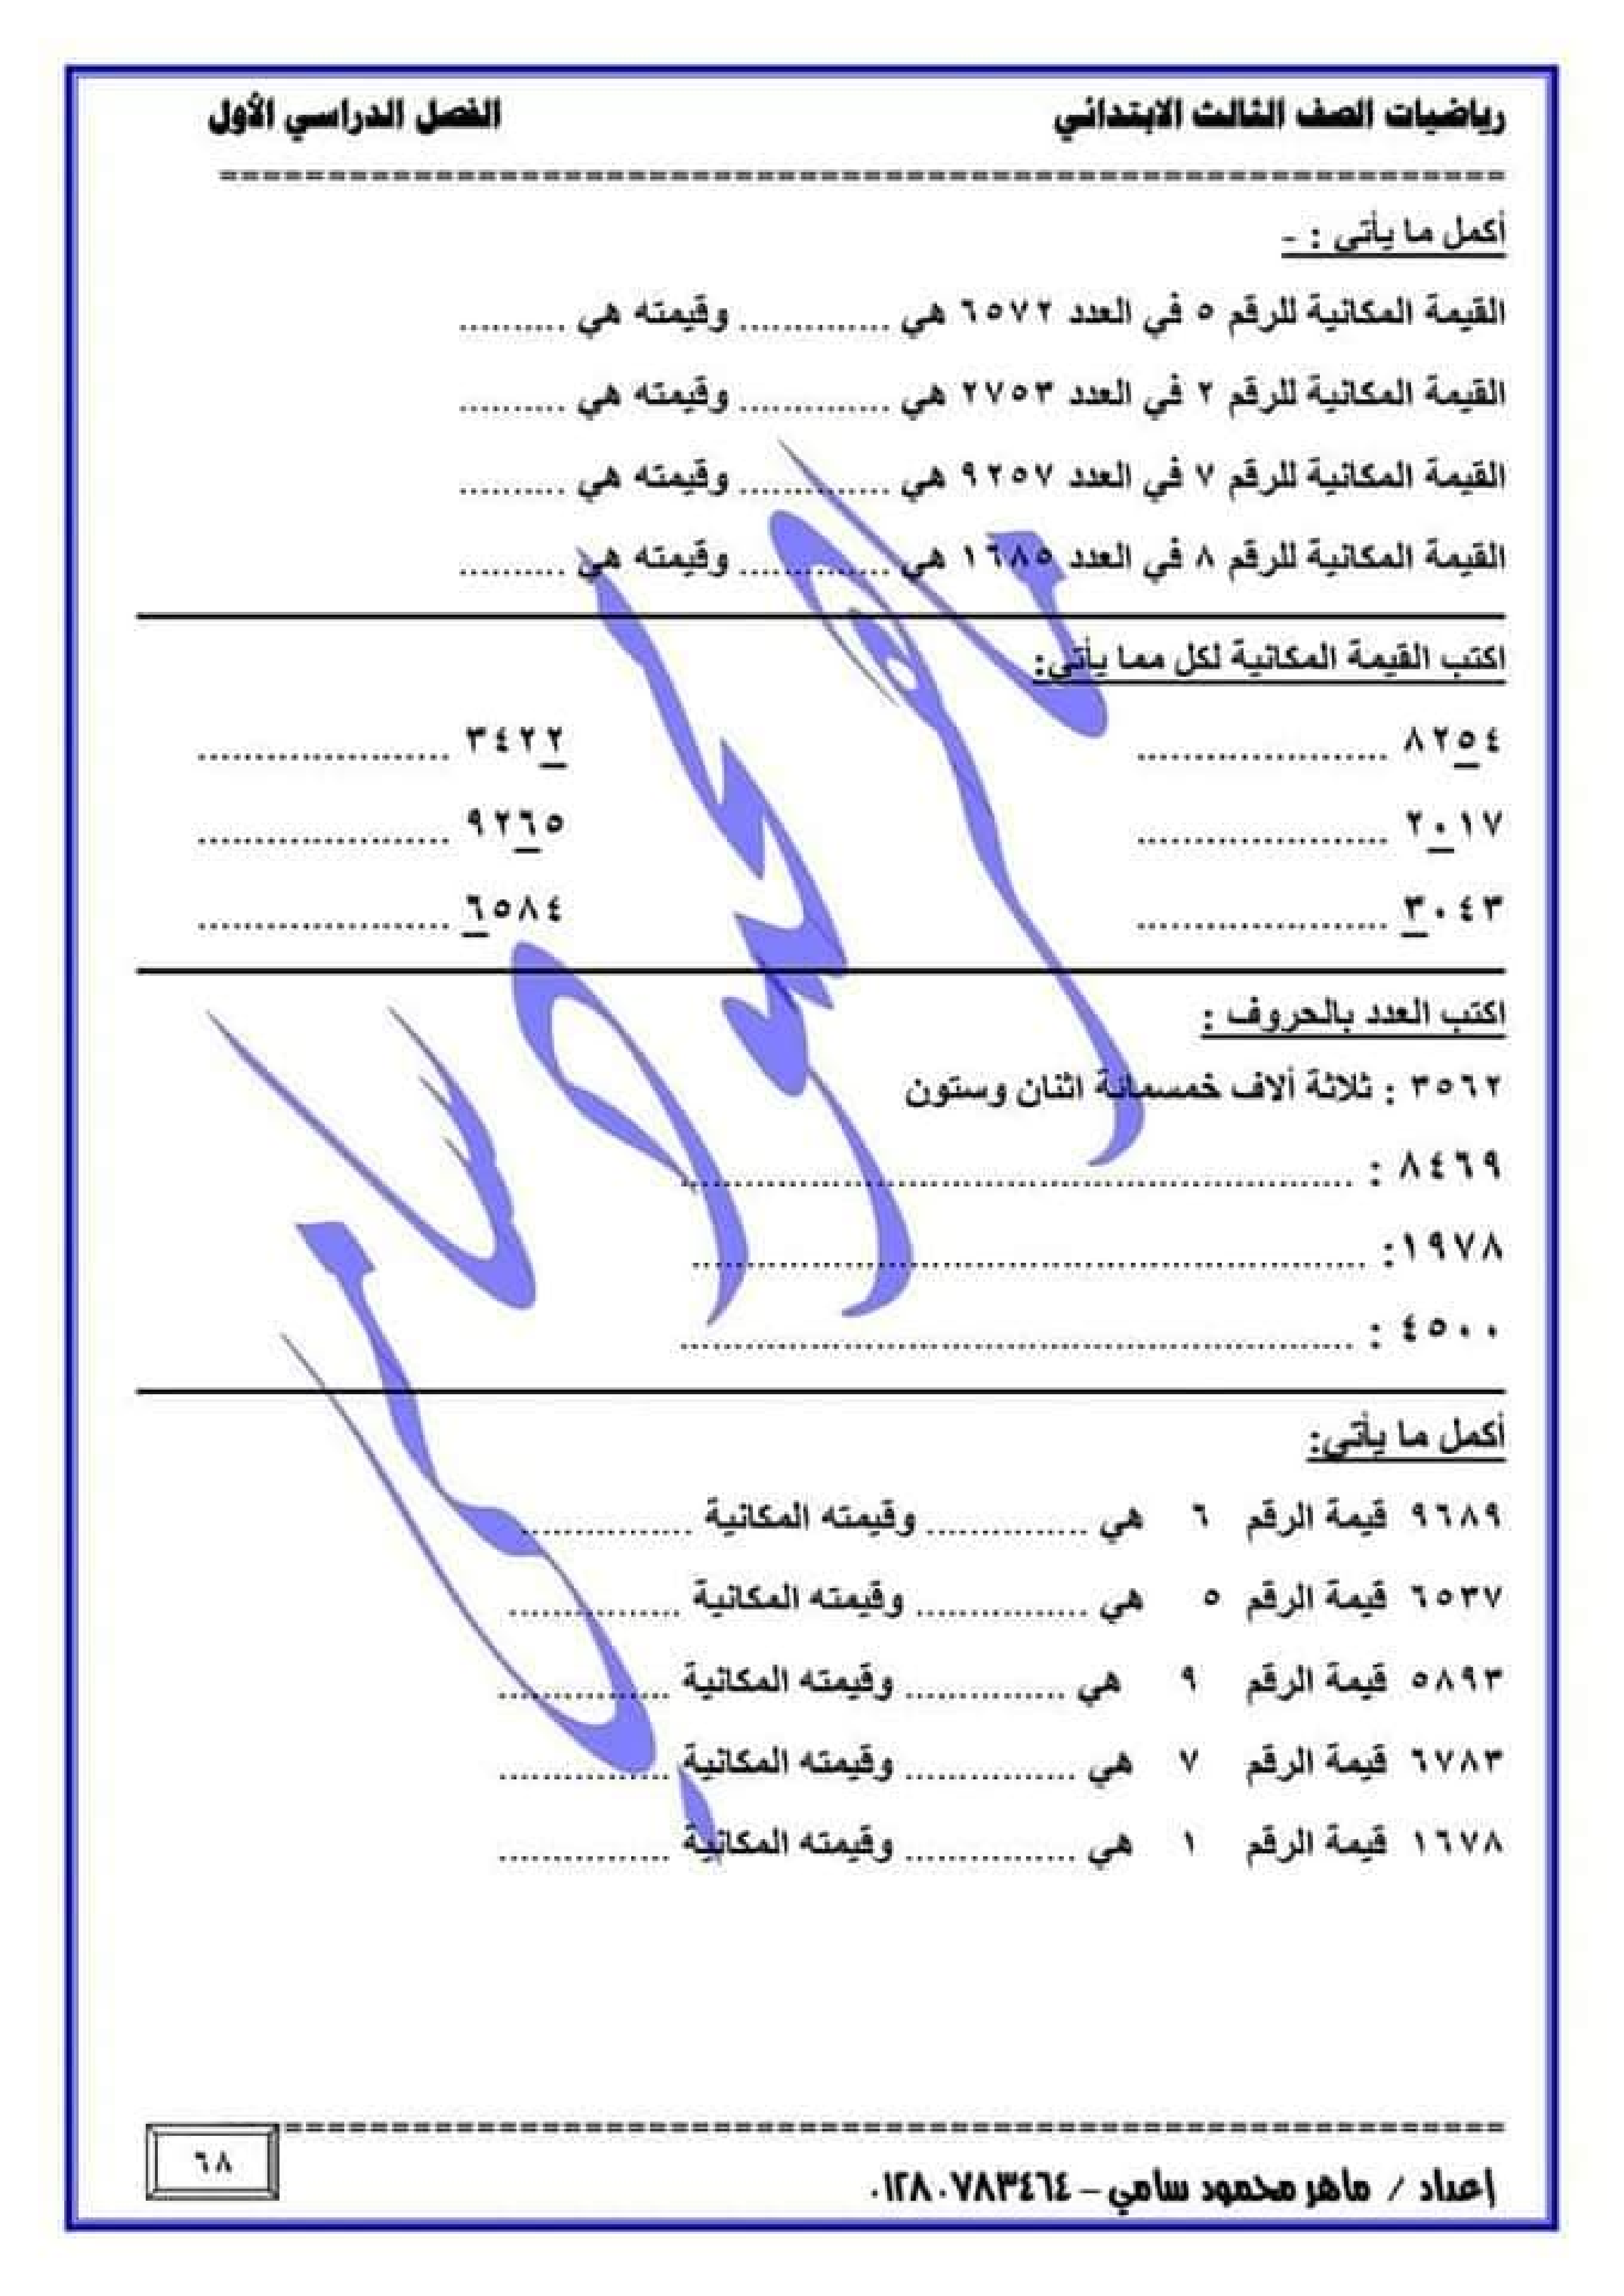 رياضيات الصف الثالث الابتدائي الفصل الدراسي الأول
أكمل ما يأتى : -
القيمة المكانية للرقم ٥ في العدد ٦٥٧٢ هي .............. وقيمته هي ..........
القيمة المكانية للرقم ٢ في العدد ٢٧٥٣ هي .............. وقيمته هي ..........
القيمة المكانية للرقم ٧ في العدد ٩٢٥٧ هي .............. وقيمته هي ..........
القيمة المكانية للرقم ٨ في العدد ١٦٨٥ هي .............. وقيمته هي ..........
اكتب القيمة المكانية لكل مما يأتى:
٨٢٥٤ ...................... ٣٤٢٢ ......................
٢٠١٧ ...................... ٩٢٦٥ ......................
٣٠٤٣ ...................... ٦٥٨٤ ......................
اكتب العدد بالحروف :
٣٥٦٢ : ثلاثة ألاف خمسمائة اثنان وستون
٨٤٦٩ : ............................................................
١٩٧٨: ............................................................
٤٥٠٠ : ............................................................
أكمل ما يأتي:
٩٦٨٩ قيمة الرقم ٦ هي ............... وقيمته المكانية ................
٦٥٣٧ قيمة الرقم ٥ هي ................ وقيمته المكانية ................
٥٨٩٣ قيمة الرقم ٩ هي ............... وقيمته المكانية ................
٦٧٨٣ قيمة الرقم ٧ هي ................ وقيمته المكانية ................
١٦٧٨ قيمة الرقم ١ هي ................ وقيمته المكانية ................
إعداد / ماهر محمود سامي – ٠١٢٨٠٧٨٣٤٦٤
٦٨